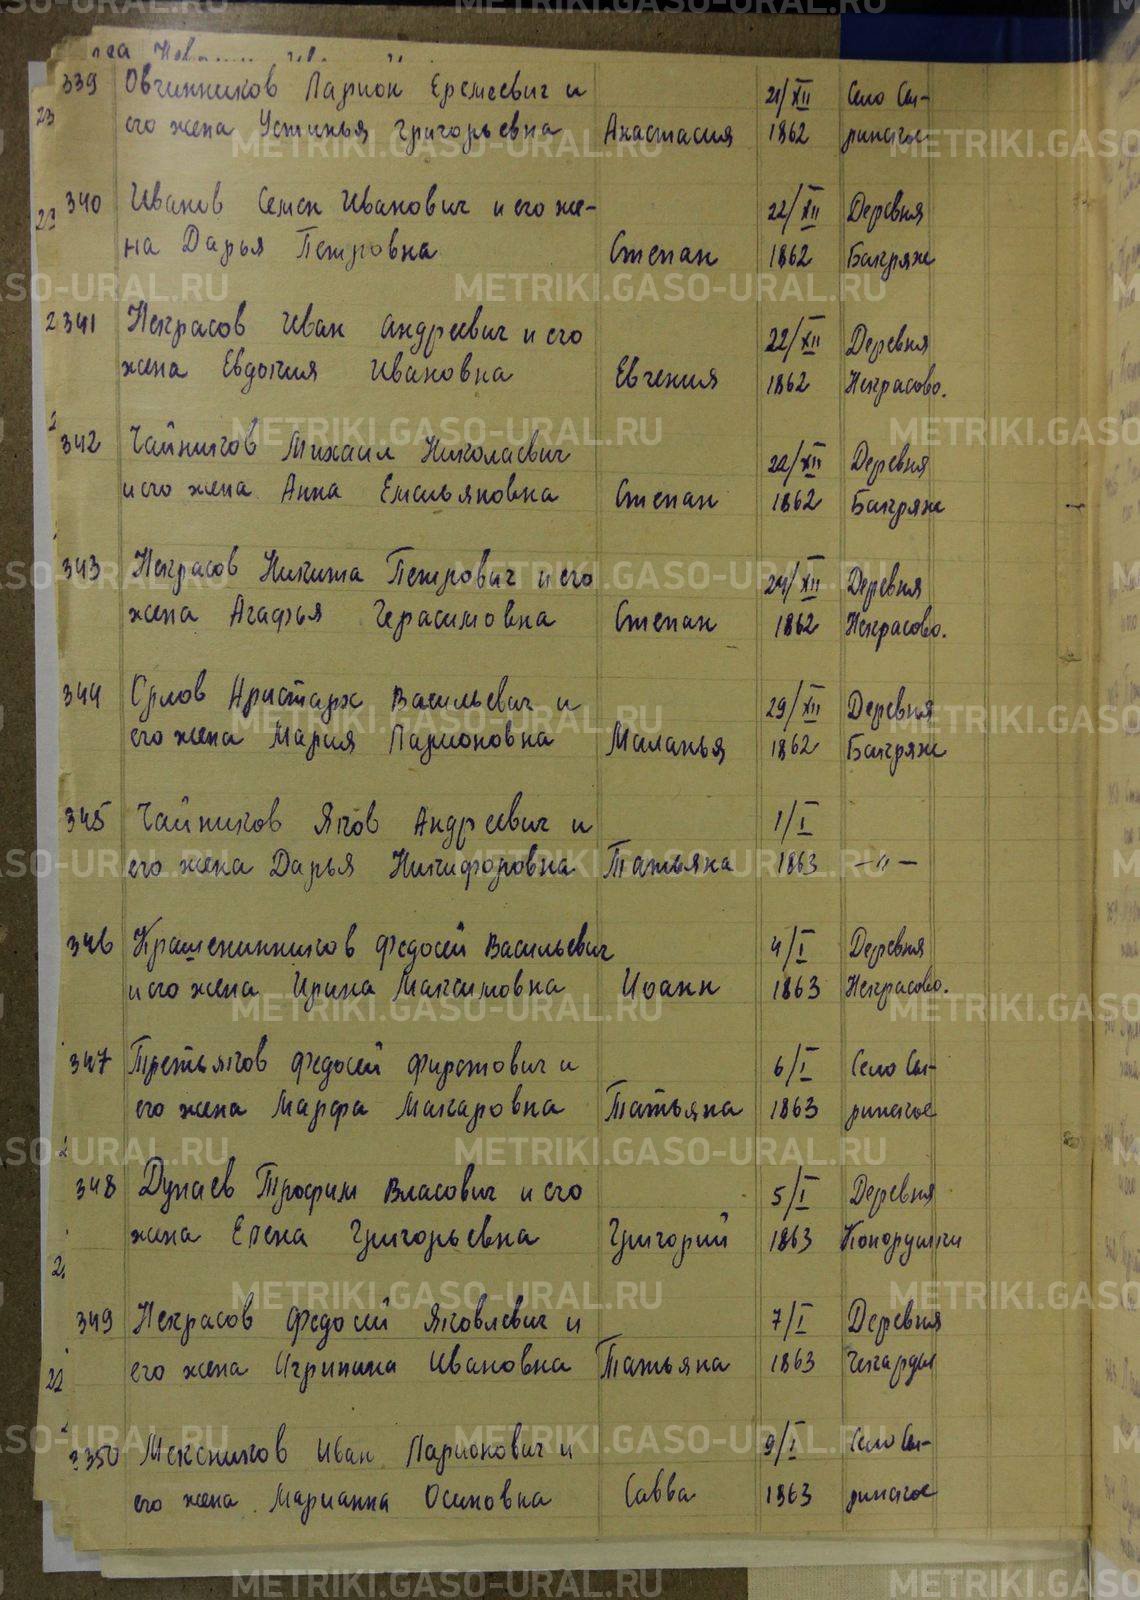 339 Овчинников Ларион Еремеевич и
его жена Устинья Григорьевна Анастасия 21/XII 1862 Село Сы-
ринское
340 Иванов Семен Иванович и его же-
на Дарья Петровна Степан 22/XII 1862 Деревня
Бакряж
341 Некрасов Иван Андреевич и его
жена Евдокия Ивановна Евгения 22/XII 1862 Деревня
Некрасово.
342 Чайников Михаил Николаевич
и его жена Анна Емельяновна Степан 22/XII 1862 Деревня
Бакряж
343 Некрасов Никита Петрович и его
жена Агафья Герасимовна Степан 24/XII 1862 Деревня
Некрасово.
344 Орлов Аристарх Васильевич и
его жена Мария Ларионовна Маланья 29/XII 1862 Деревня
Бакряж
345 Чайников Яков Андреевич и
его жена Дарья Никифоровна Татьяна 1/I 1863 —"—
346 Крашенинников Федосей Васильевич
и его жена Ирина Максимовна Иоанн 4/I 1863 Деревня
Некрасово.
347 Третьяков Федосей Фирсович и
его жена Марфа Макаровна Татьяна 6/I 1863 Село Сы-
ринское
348 Дунаев Трофим Власович и его
жена Елена Григорьевна Григорий 5/I 1863 Деревня
Конорушки
349 Некрасов Федосий Яковлевич и
его жена Агрипина Ивановна Татьяна 7/I 1863 Деревня
Чекарды
350 Мексиков Иван Ларионович и
его жена Марианна Осиповна Савва 9/I 1863 Село Сы-
ринское
METRIKI.GASO-URAL.RU